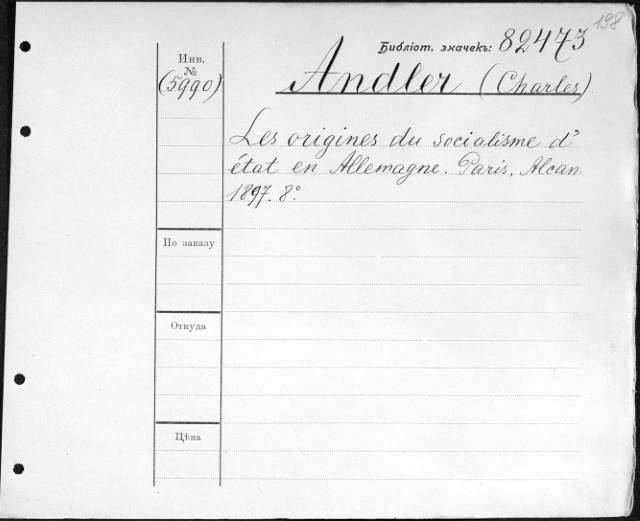 198
Библіот. значекъ: 82473
Инв.
№
(5990)
Andler (Charles)
Les origines du socialisme d'
état en Allemagne. Paris, Alcan.
1897. 8°.
По заказу
Откуда
Цѣна